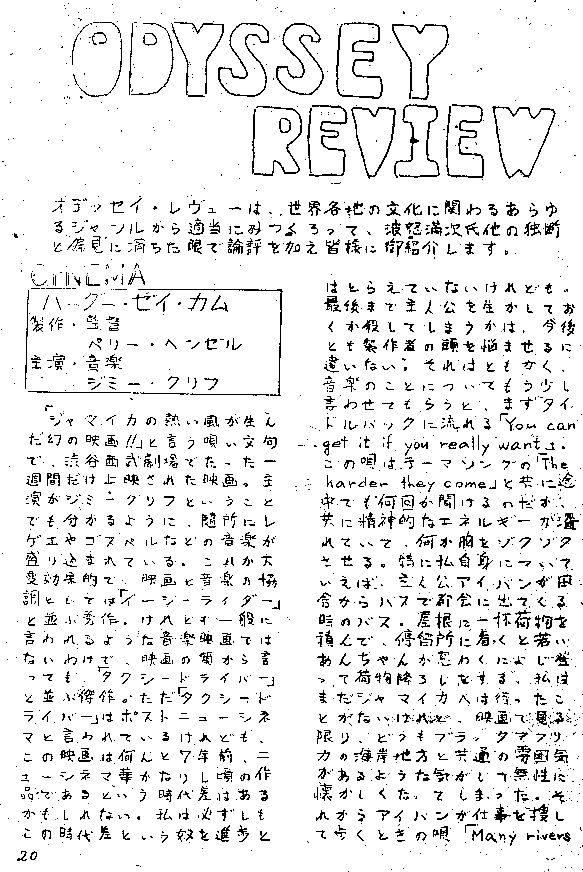 ODYSSEY
REVIEW
オデッセイ・レヴューは、世界各地の文化に関わるあらゆ
るジャンルから適当にみつくろって、波怒満次氏他の独断
と偏見に満ちた眼で論評を加え皆様に御紹介します。
CINEMA
ハーダー・ゼイ・カム
製作・監督
ペリー・ヘンゼル
主演・音楽
ジミー・クリフ
「ジャマイカの熱い風が生ん
だ幻の映画!!」と言う唄い文句
で、渋谷西武劇場でたった一
週間だけ上映された映画。主
演がジミークリフということ
でも分かるように、随所にレ
ゲエやゴスペルなどの音楽が
盛り込まれている。これが大
変効果的で、映画と音楽の協
調としては「イージーライダー」
と並ぶ秀作。けれども一般に
言われるような音楽映画では
ないわけで、映画の面から言
っても、「タクシードライバー」
と並ぶ傑作。ただ「タクシード
ライバー」はポストニューシネ
マと言われているけれども、
この映画は何んと7年前、ニ
ューシネマ華かなりし頃の作
品であるという時代差はある
かもしれない。私は必ずしも
この時代差という奴を進歩と
はとらえていないけれども。
最後まで主人公を生かしてお
くか殺してしまうかは、今後
とも製作者の頭を悩ませるに
違いない。それはともかく、
音楽のことについてもう少し
言わせてもらうと、まずタイ
トルバックに流れる「You can
get it if you really want」。
この唄はテーマソングの「The
harder they come」と共に途
中でも何回か聞けるのだが、
共に精神的なエネルギーが溢
れていて、何か胸をゾクゾク
させる。特に私自身について
いえば、主人公アイバンが田
舎からバスで都会に出てくる
時のバス。屋根に一杯荷物を
積んで、停留所に着くと若い
あんちゃんが思わくによじ登
って荷物降ろしをする。私は
まだジャマイカへは行ったこ
とがないけれど、映画で見る
限り、どうもブラックアフリ
カの海岸地方と共通の雰囲気
があるような気がして無性に
懐かしくなってしまった。そ
れからアイバンが仕事を捜し
て歩くときの唄「Many rivers
20